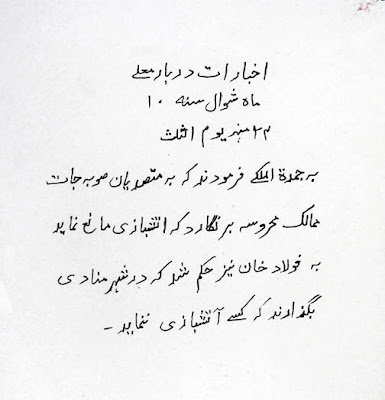 اخبارات دربار معلے
ماہ شوال سنہ ۱۰
۲۴ منہ یوم الثلث
بہ جمدة الملکے فرمودند کہ بہ متصدیان صوبہ جات
ممالک محروسہ برنگارد کہ اتشبازی مانع نماید
بہ فولاد خان نیز حکم شد کہ در شہر منادی
بگذارند کہ کسے آتشبازی ننماید -